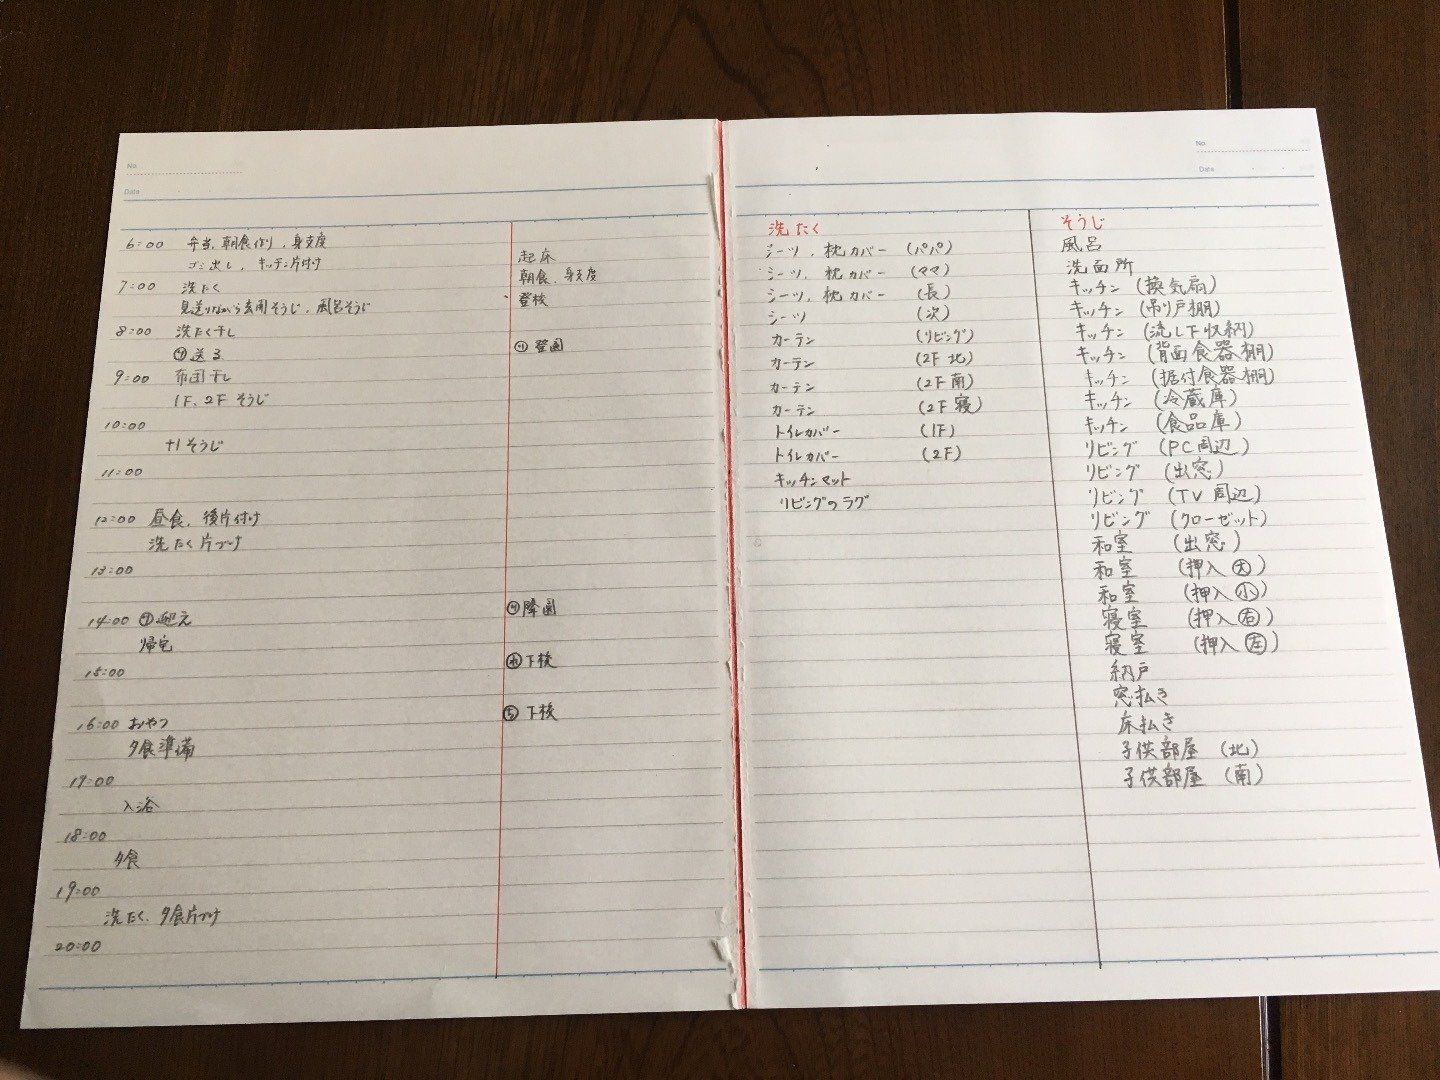 No.
Date
6:00 弁当、朝食作り、身支度
ゴミ出し、キッチン片付け
7:00 洗たく
見送りながら玄関そうじ、風呂そうじ
8:00 洗たく干し
送る
9:00 布団干し
1F、2F そうじ
10:00
+1そうじ
11:00
12:00 昼食、後片付け
洗たく片づけ
13:00
14:00 迎え
帰宅
15:00
16:00 おやつ
夕食準備
17:00
入浴
18:00
夕食
19:00
洗たく、夕食片づけ
20:00
起床
朝食、身支度
登校
登園
降園
下校
下校
No.
Date
洗たく
シーツ、枕カバー (パパ)
シーツ、枕カバー (ママ)
シーツ、枕カバー (長)
シーツ (次)
カーテン (リビング)
カーテン (2F 北)
カーテン (2F 南)
カーテン (2F 寝)
トイレカバー (1F)
トイレカバー (2F)
キッチンマット
リビングのラグ
そうじ
風呂
洗面所
キッチン (換気扇)
キッチン (吊り戸棚)
キッチン (流し下収納)
キッチン (背面食器棚)
キッチン (据付食器棚)
キッチン (冷蔵庫)
キッチン (食品庫)
リビング (PC周辺)
リビング (出窓)
リビング (TV周辺)
リビング (クローゼット)
和室 (出窓)
和室 (押入㊤大)
和室 (押入小)
寝室 (押入㊨)
寝室 (押入㊧)
納戸
窓払き
床払き
子供部屋 (北)
子供部屋 (南)